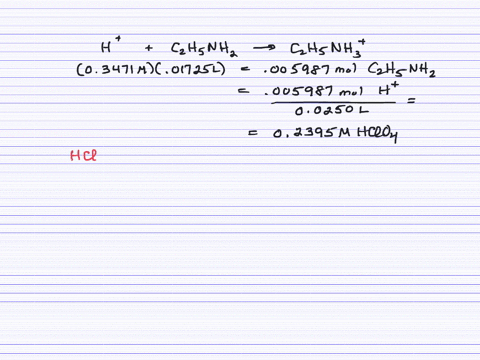 H⁺ + C₂H₅NH₂ → C₂H₅NH₃⁺
(0.3471 M)(.01725L) = .005987 mol C₂H₅NH₂
= .005987 mol H⁺
0.0250 L =
= 0.2395 M HClO₄
HCl